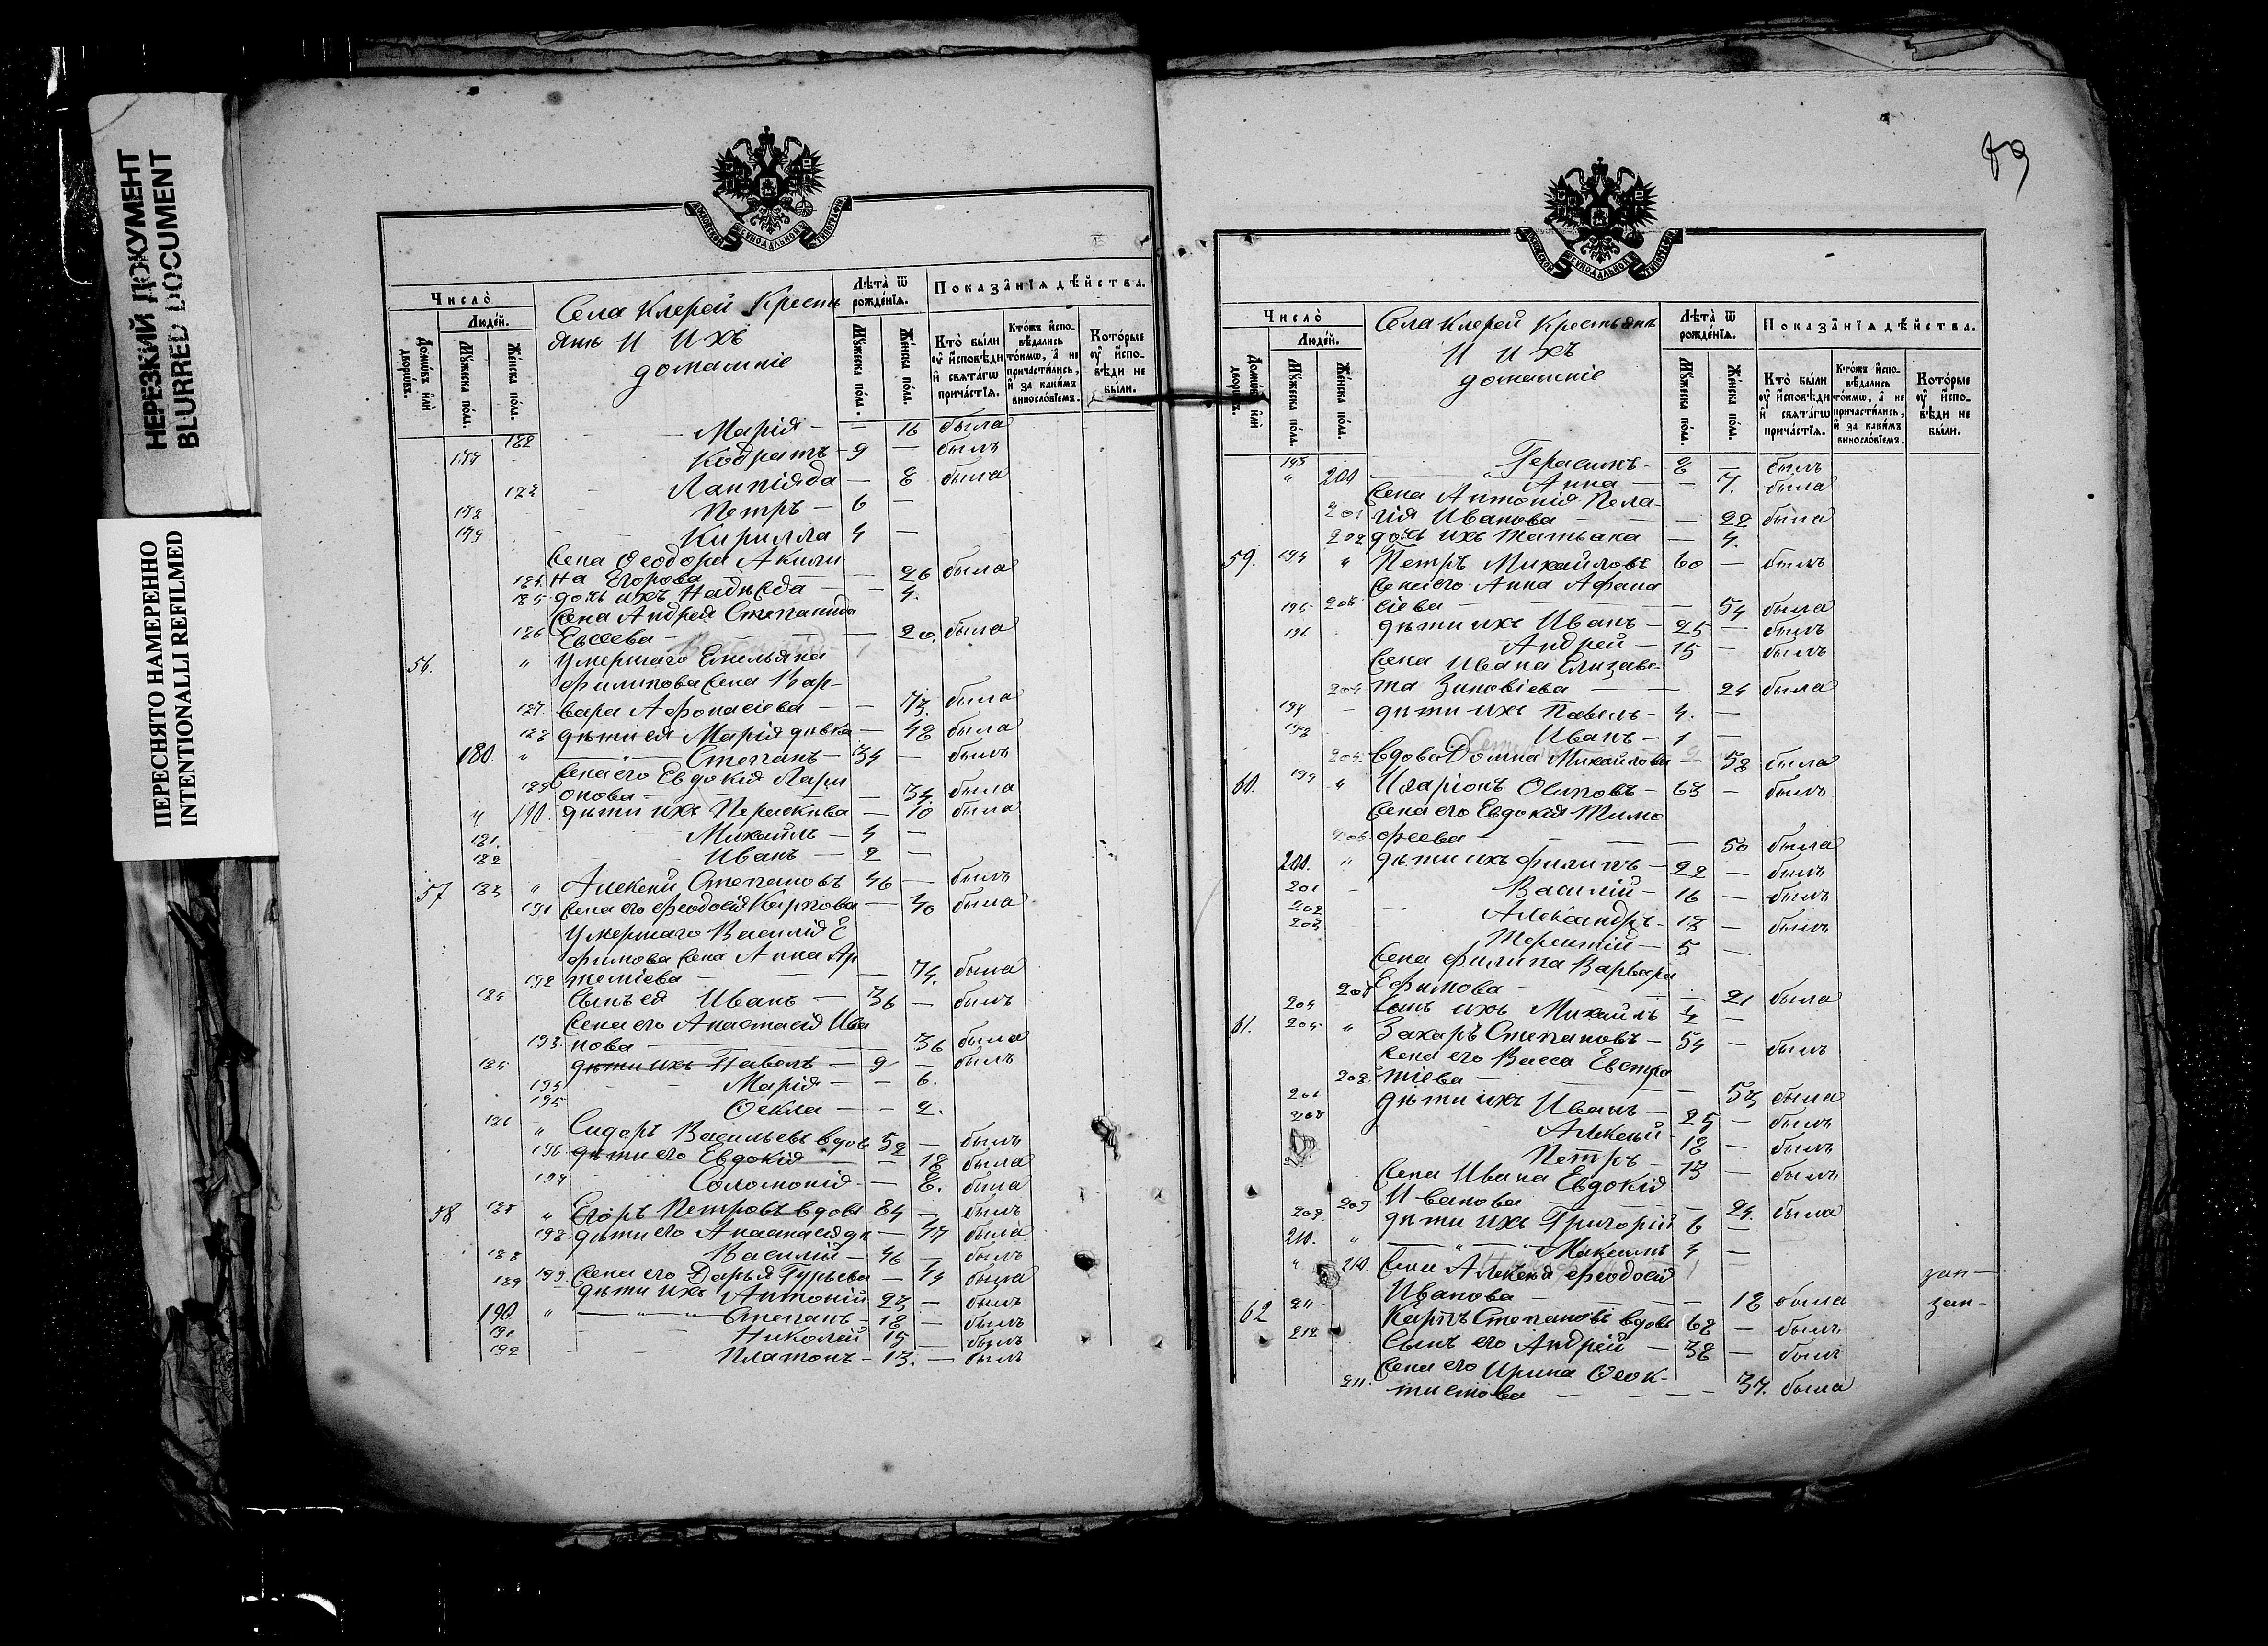 НЕРЕЗКИЙ ДОКУМЕНТ
BLURRED DOCUMENT
ПЕРЕСНЯТО НАМЕРЕННО
INTENTIONALLI REFILMED
МОСКОВСКОЙ СѴНОДАЛЬНОЙ ТИПОГРАФІИ
Число̀
Люде́й.
Домѡ́въ и҆лѝ дворѡ́въ.
Мꙋ́жеска по́ла.
Же́нска по́ла.
Села Клерей Кресть
янъ И Ихъ
домашніе
Лѣта̀ ѿ рожде́нїѧ.
Мꙋ́жеска по́ла.
Же́нска по́ла.
Показа̂нїѧ дѣ́йства.
Кто̀ бы́ли ᲂу҆ и҆сповѣ́ди и҆ свѧта́гѡ прича́стїѧ.
Кто́жъ и҆спо- вѣ́дались то́кмѡ, а҆ не причасти́лись, и҆ за каки́мъ виносло́вїемъ.
Кото́рые ᲂу҆ и҆спо- вѣ́ди не бы́ли.
182 Марія — — 16 была
177 Кодратъ — 9 — былъ
183 Лампіяда — 8 была
178 Петръ — 6 —
179 Кирилла 4 —
Жена Ѳеодора Акили
184 на Егорова — 26 была
185 дочь ихъ Надежда — — 4.
Жена Андрея Степанида
186 Евсеева — — 20. была
56. " Умершаго Емельяна
Филипова жена Вар-
187 вара Афонасіева — — 73. была
188 дѣти ея Марія дѣвка — 48 была
180. " Степанъ — 34 — былъ
Жена его Евдокія Лари
189 онова — — 34. была
" 190. дѣти ихъ Пераскива — 10 была
181. Михаилъ — 4 —
182 Иванъ — 2 —
57 183 " Алексѣй Степановъ 46 — былъ
191 жена его Феодосія Карпова — 40 была
Умершаго Василія Е
фимова жена Анна Ар
192 темпіева — — 74. была
184 Сынъ ея Иванъ — 36 — былъ
Жена его Анастасія Ива
193 нова — 36 была
185 дѣти ихъ Павелъ — 9 — былъ
194 Марія — — 6.
195 Ѳекла — — 2.
186 " Сидоръ Васильевъ вдов 52 — былъ
196 дѣти его Евдокія — — 18 была
197 Соломонія — — 8. была
58 187 " Егоръ Петровъ вдовъ 84 — былъ
198 дѣти его Анастасія дѣ — 47 была
188 Василій — 46 — былъ
199 жена его Дарья Гурьева — 44 была
189 дѣти ихъ Антоній 23 — былъ
190 " Степанъ — 18 — былъ
191 Николай 15 — былъ
192 Платонъ — 13. — былъ
89
МОСКОВСКОЙ СѴНОДАЛЬНОЙ ТИПОГРАФІИ
Число̀
Люде́й.
Домѡ́въ и҆лѝ дворѡ́въ.
Мꙋ́жеска по́ла.
Же́нска по́ла.
Села Клерей Крестьянъ
И Ихъ
домашніе
Лѣта̀ ѿ рожде́нїѧ.
Мꙋ́жеска по́ла.
Же́нска по́ла.
Показа̂нїѧ дѣ́йства.
Кто̀ бы́ли ᲂу҆ и҆сповѣ́ди и҆ свѧта́гѡ прича́стїѧ.
Кто́жъ и҆спо- вѣ́дались то́кмѡ, а҆ не причасти́лись, и҆ за каки́мъ виносло́вїемъ.
Кото́рые ᲂу҆ и҆спо- вѣ́ди не бы́ли.
193 Герасимъ — 8 — былъ
" 200 Анна — — 7. была
Жена Антонія Пела-
201 гія Иванова — — 22 была
202 дочь ихъ Татьана — 4.
59. 194 " Петръ Михайловъ 60 — былъ
Жена его Анна Афана
203 сіева — — 54 была
195 дѣти ихъ Иванъ — 25 — былъ
196 Андрей — 15 — былъ
Жена Ивана Елизаве-
204 та Зиновіева — — 24 была
197 дѣти ихъ Павелъ — 4. —
198 Иванъ — 1 —
205 вдова Домна Михайлова — 58 была
60. 199 " Иларіонъ Осиповъ — 63 — былъ
Жена его Евдокія Тимо
206 феева — — 50 была
200. " дѣти ихъ Филипъ — 22 — былъ
201 Василій — 16 — былъ
202 Александръ — 13 — былъ
203 Терентій — 5 —
Жена Филипа Варвара
207 Ефимова — — 21 была
204 Сынъ ихъ Михаилъ —
61. 205 " Захаръ Степановъ — 54 — былъ
Жена его Васса Евстра
208 тіева — — 53 была
206 дѣти ихъ Иванъ — 25 — былъ
207 Алексѣй — 18 — былъ
Петръ — 13 — былъ
Жена Ивана Евдокія
209 Иванова — 24. была
209. дѣти ихъ Григорій 6 —
210. " Максимъ 4 —
" 210. Жена Алексѣя Феодосія
Иванова — — 18 была
62 211 Карпъ Степановъ вдовъ 68 — былъ
212 Сынъ его Андрей — 38 — былъ
Жена его Ирина Ѳеок-
211. тистова — — — 37. была